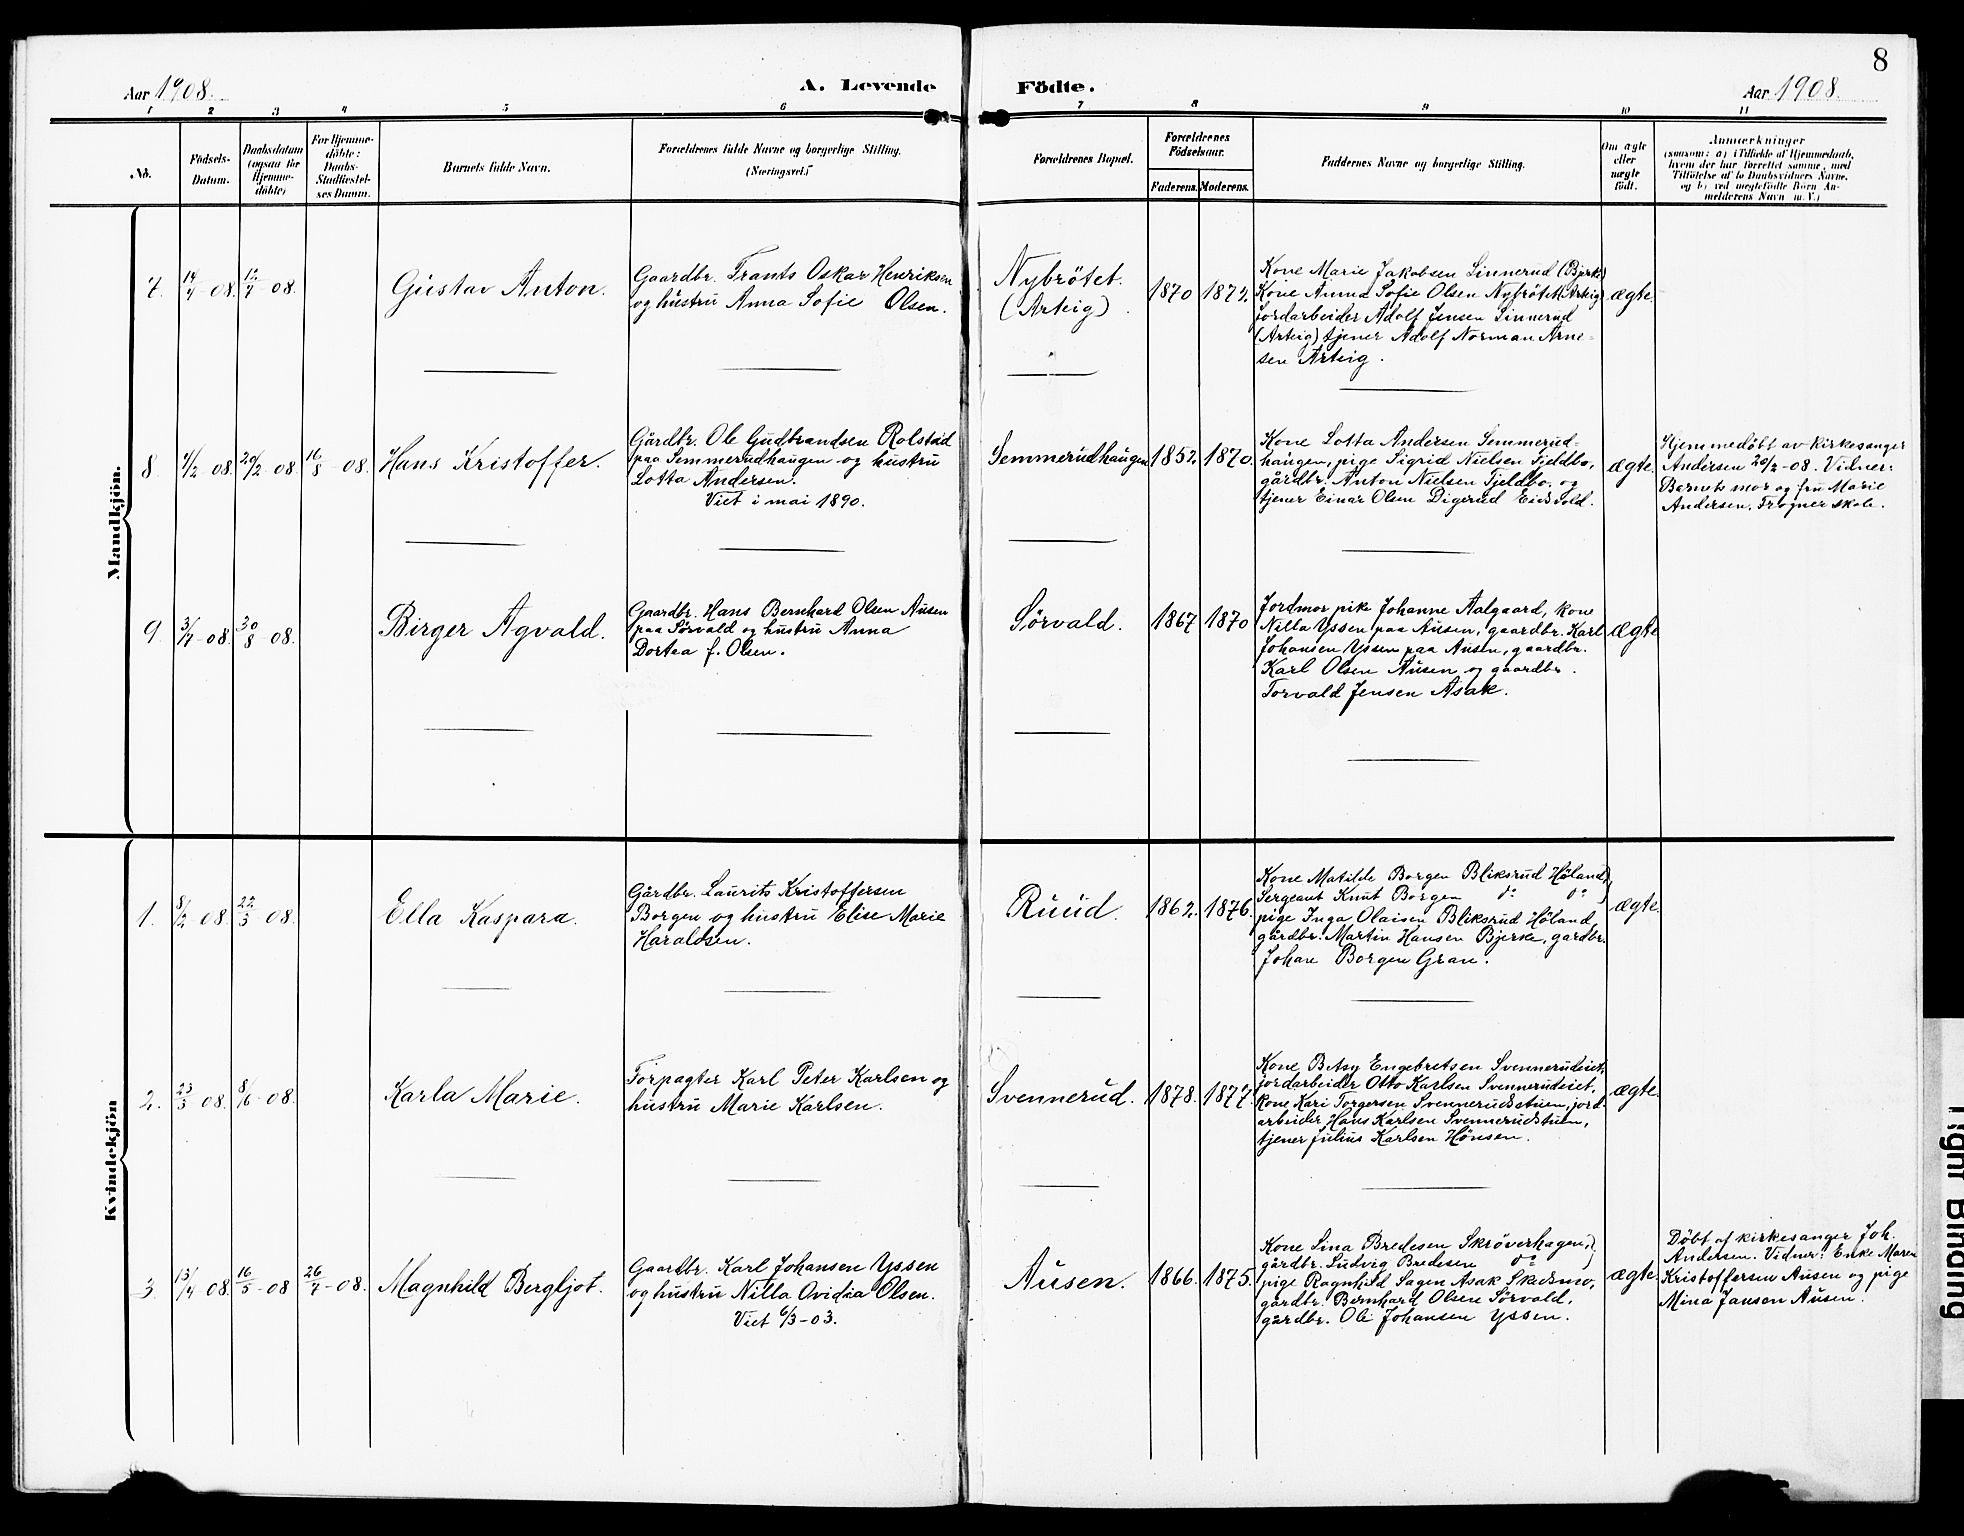 8
Aar 1908.
A. Levende Födte.
Aar 1908.
1 2 3 4 5 6 7 8 9 10 11
No.
Födsels-
Datum.
Daabsdatum
(ogsaa for
Hjemme-
döbte)
For Hjemme-
döbte:
Daabs-
Stadfæstel-
ses Datum.
Barnets fulde Navn.
Forældrenes fulde Navne og borgerlige Stilling.
(Næringsvei.)
Forældrenes Bopæl.
Forældrenes
Födselsaar.
Faderens. Moderens.
Faddernes Navne og borgerlige Stilling.
Om ægte
eller
uægte
født.
Anmærkninger
(saasom: a) i Tilfælde af Hjemmedaab,
hvem der har forrettet samme, med
Tilföielse af to Daabsvidners Navne.
og b) ved uægtefödte Børn An-
melderens Navn m. V.)
Mandkjön.
7.
14/4 - 08.
12/7 - 08.
Gustav Anton.
Gaardbr. Frants Oskar Henriksen
og hustru Anna Sofie Olsen.
Nybrötet.
(Arteig)
1870
1872.
Kone Marie Jakobsen Linnerud (Bjerke)
Kone Anna Sofie Olsen Nybrötet (Arteig)
Jordarbeider Adolf Jensen Linnerud
(Arteig) tjener Adolf Norman Arne-
sen Arteig.
ægte
8.
4/2 08.
20/2 08.
16/8 - 08.
Hans Kristoffer.
Gårdbr. Ole Gudbrandsen Rolstad
paa Semmerudhaugen og hustru
Lotta Andersen.
Viet i mai 1890.
Semmerudhaugen
1852.
1870.
Kone Lotta Andersen Semmerud-
haugen, pige Sigrid Nielsen Fjeldbo,
gårdbr. Anton Nielsen Fjeldbo. og
tjener Einar Olsen Digerud Eidsvold.
ægte
Hjemmedöbt av kirkesanger
Andersen 20/2-08. Vidner:
Barnets mor og fru Marie
Andersen. Frogner skole.
9.
3/7 - 08.
30/8 08.
Birger Agvald.
Gaardbr. Hans Bernhard Olsen Ausen
paa Sørvald og hustru Anna
Dortea f. Olsen.
Sörvald.
1867
1870
Jordmor pike Johanne Aalgaard, kone
Nilla Yssen paa Ausen, gaardbr. Karl
Johansen Yssen paa Ausen, gaardbr.
Karl Olsen Ausen og gaardbr.
Torvald Jensen Asak.
ægte
Kvindekjön
1.
8/2 08.
22/3 - 08.
Ella Kaspara.
Gårdbr. Laurits Kristoffersen
Borgen og hustru Elise Marie
Haraldsen.
Ruud.
1862.
1876.
Kone Matilde Borgen Bliksrud Höland,
Sergeant Knut Borgen do do
pige Inga Olaisen Bliksrud Höland,
gårdbr. Martin Hansen Bjerke, gardbr.
Johan Borgen Gran.
ægte.
2.
23/3 08.
8/6 - 08.
Karla Marie.
Forpagter Karl Peter Karlsen og
hustru Marie Karlsen.
Svennerud.
1878.
1877.
Kone Betsy Engebretsen Svennerudeiet,
jordarbeider Otto Karlsen Svennerudeiet,
kone Kari Torgersen Svennerudstuen, jord-
arbeider Hans Karlsen Svennerudstuen,
tjener Julius Karlsen Hönsen.
ægte.
3.
13/4 08.
16/5 - 08
26/7 - 08.
Magnhild Bergljot.
Gaardbr. Karl Johansen Yssen
og hustru Nilla Ovidia Olsen.
Viet 6/3 - 03.
Ausen.
1866.
1875.
Kone Lina Bredesen Skröverhagen,
gårdbr. Ludvig Bredesen do
pige Ragnhild Sagen Asak Skedsmo,
gårdbr. Bernhard Olsen Sörvald,
gårdbr. Ole Johansen Yssen.
ægte.
Döbt af kirkesanger Joh.
Andersen. Vidner: Enke Maren
Kristoffersen Ausen og pige
Mina Jansen Ausen.
Tight Binding